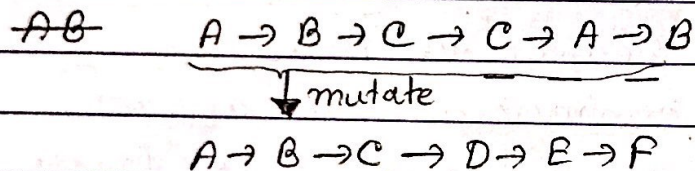 A → B → C → C → A → B
mutate
A → B → C → D → E → F